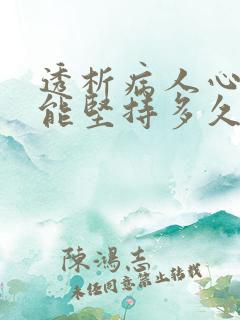 透析病人心
能堅持多久
陳鴻志
未經同意禁止轉載